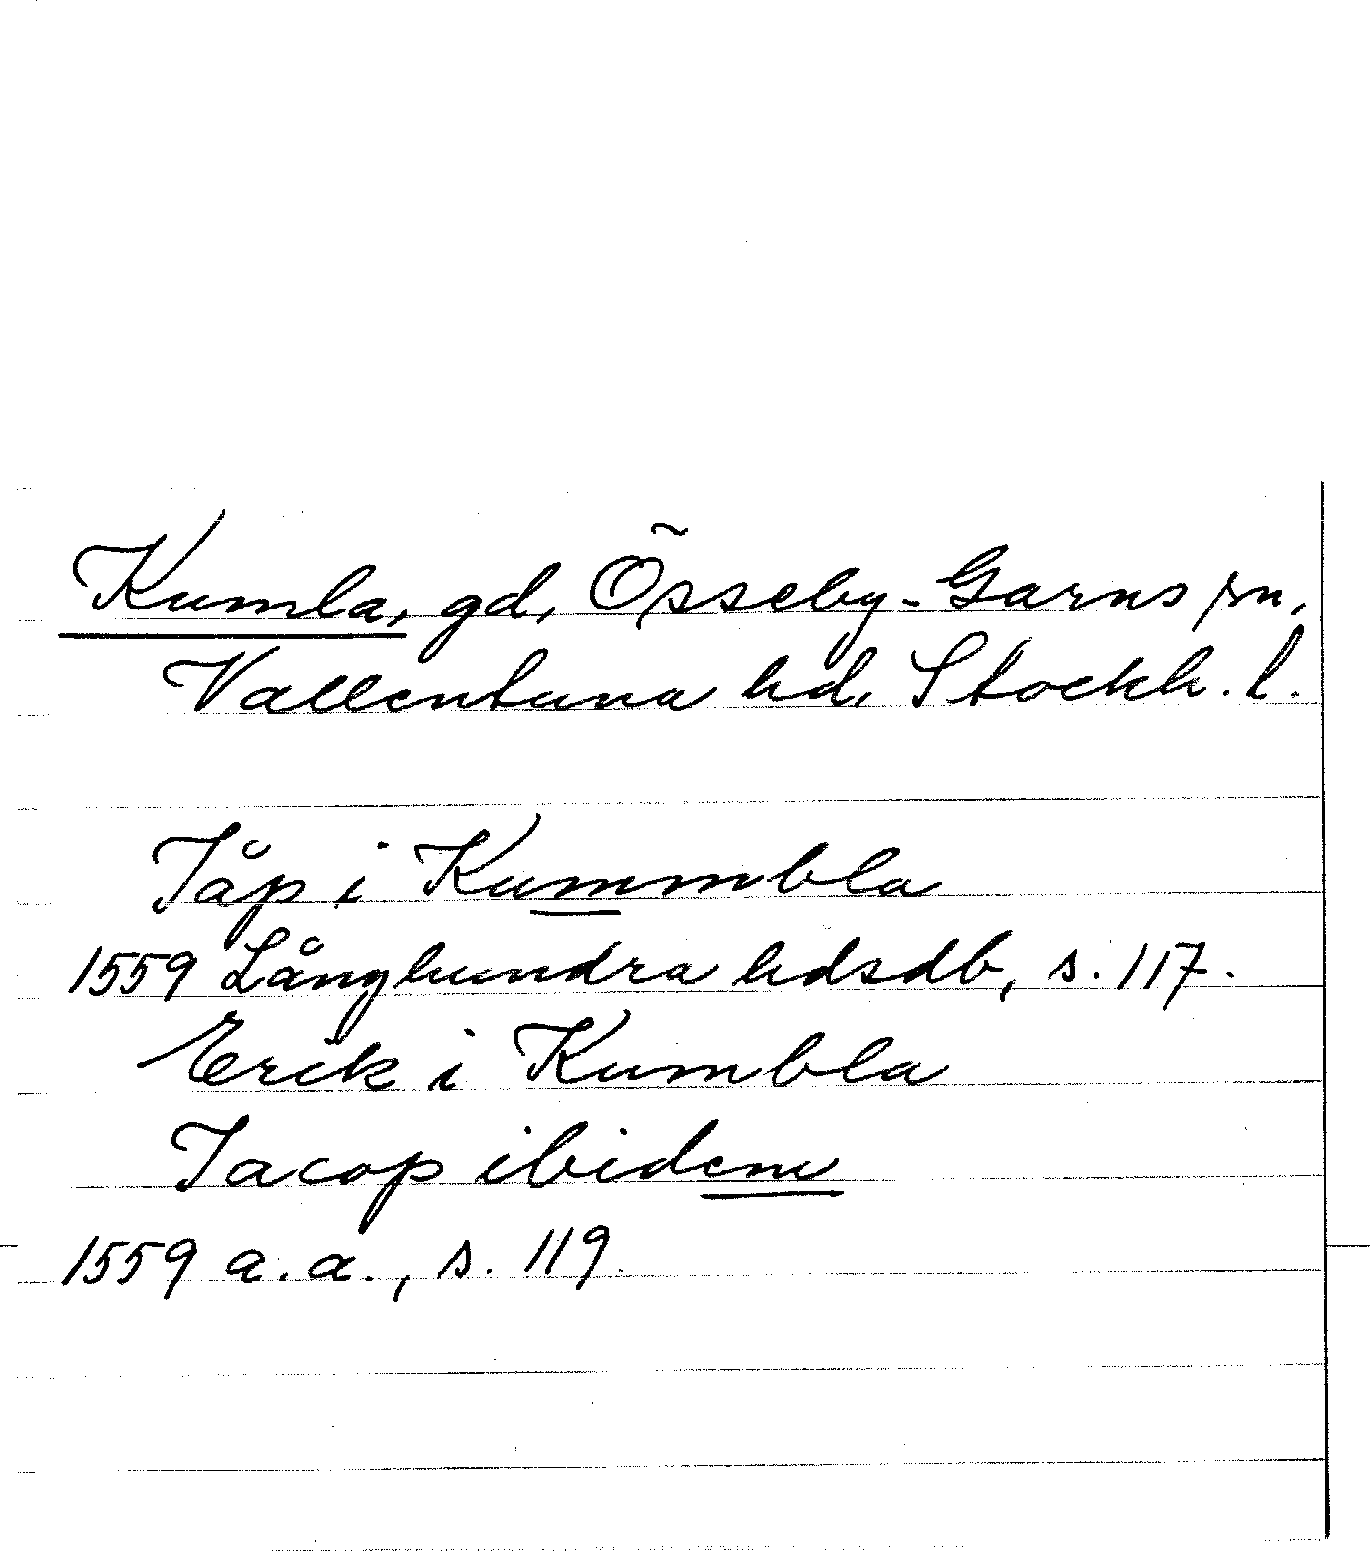 Kumla, gd, Össeby-Garns sn,
Vallentuna hd, Stockh. l.
Jåp i Kummbla
1559 Långhundra hdsdb, s. 117.
Erik i Kumbla
Jacop ibidem
1559 a.a., s. 119.